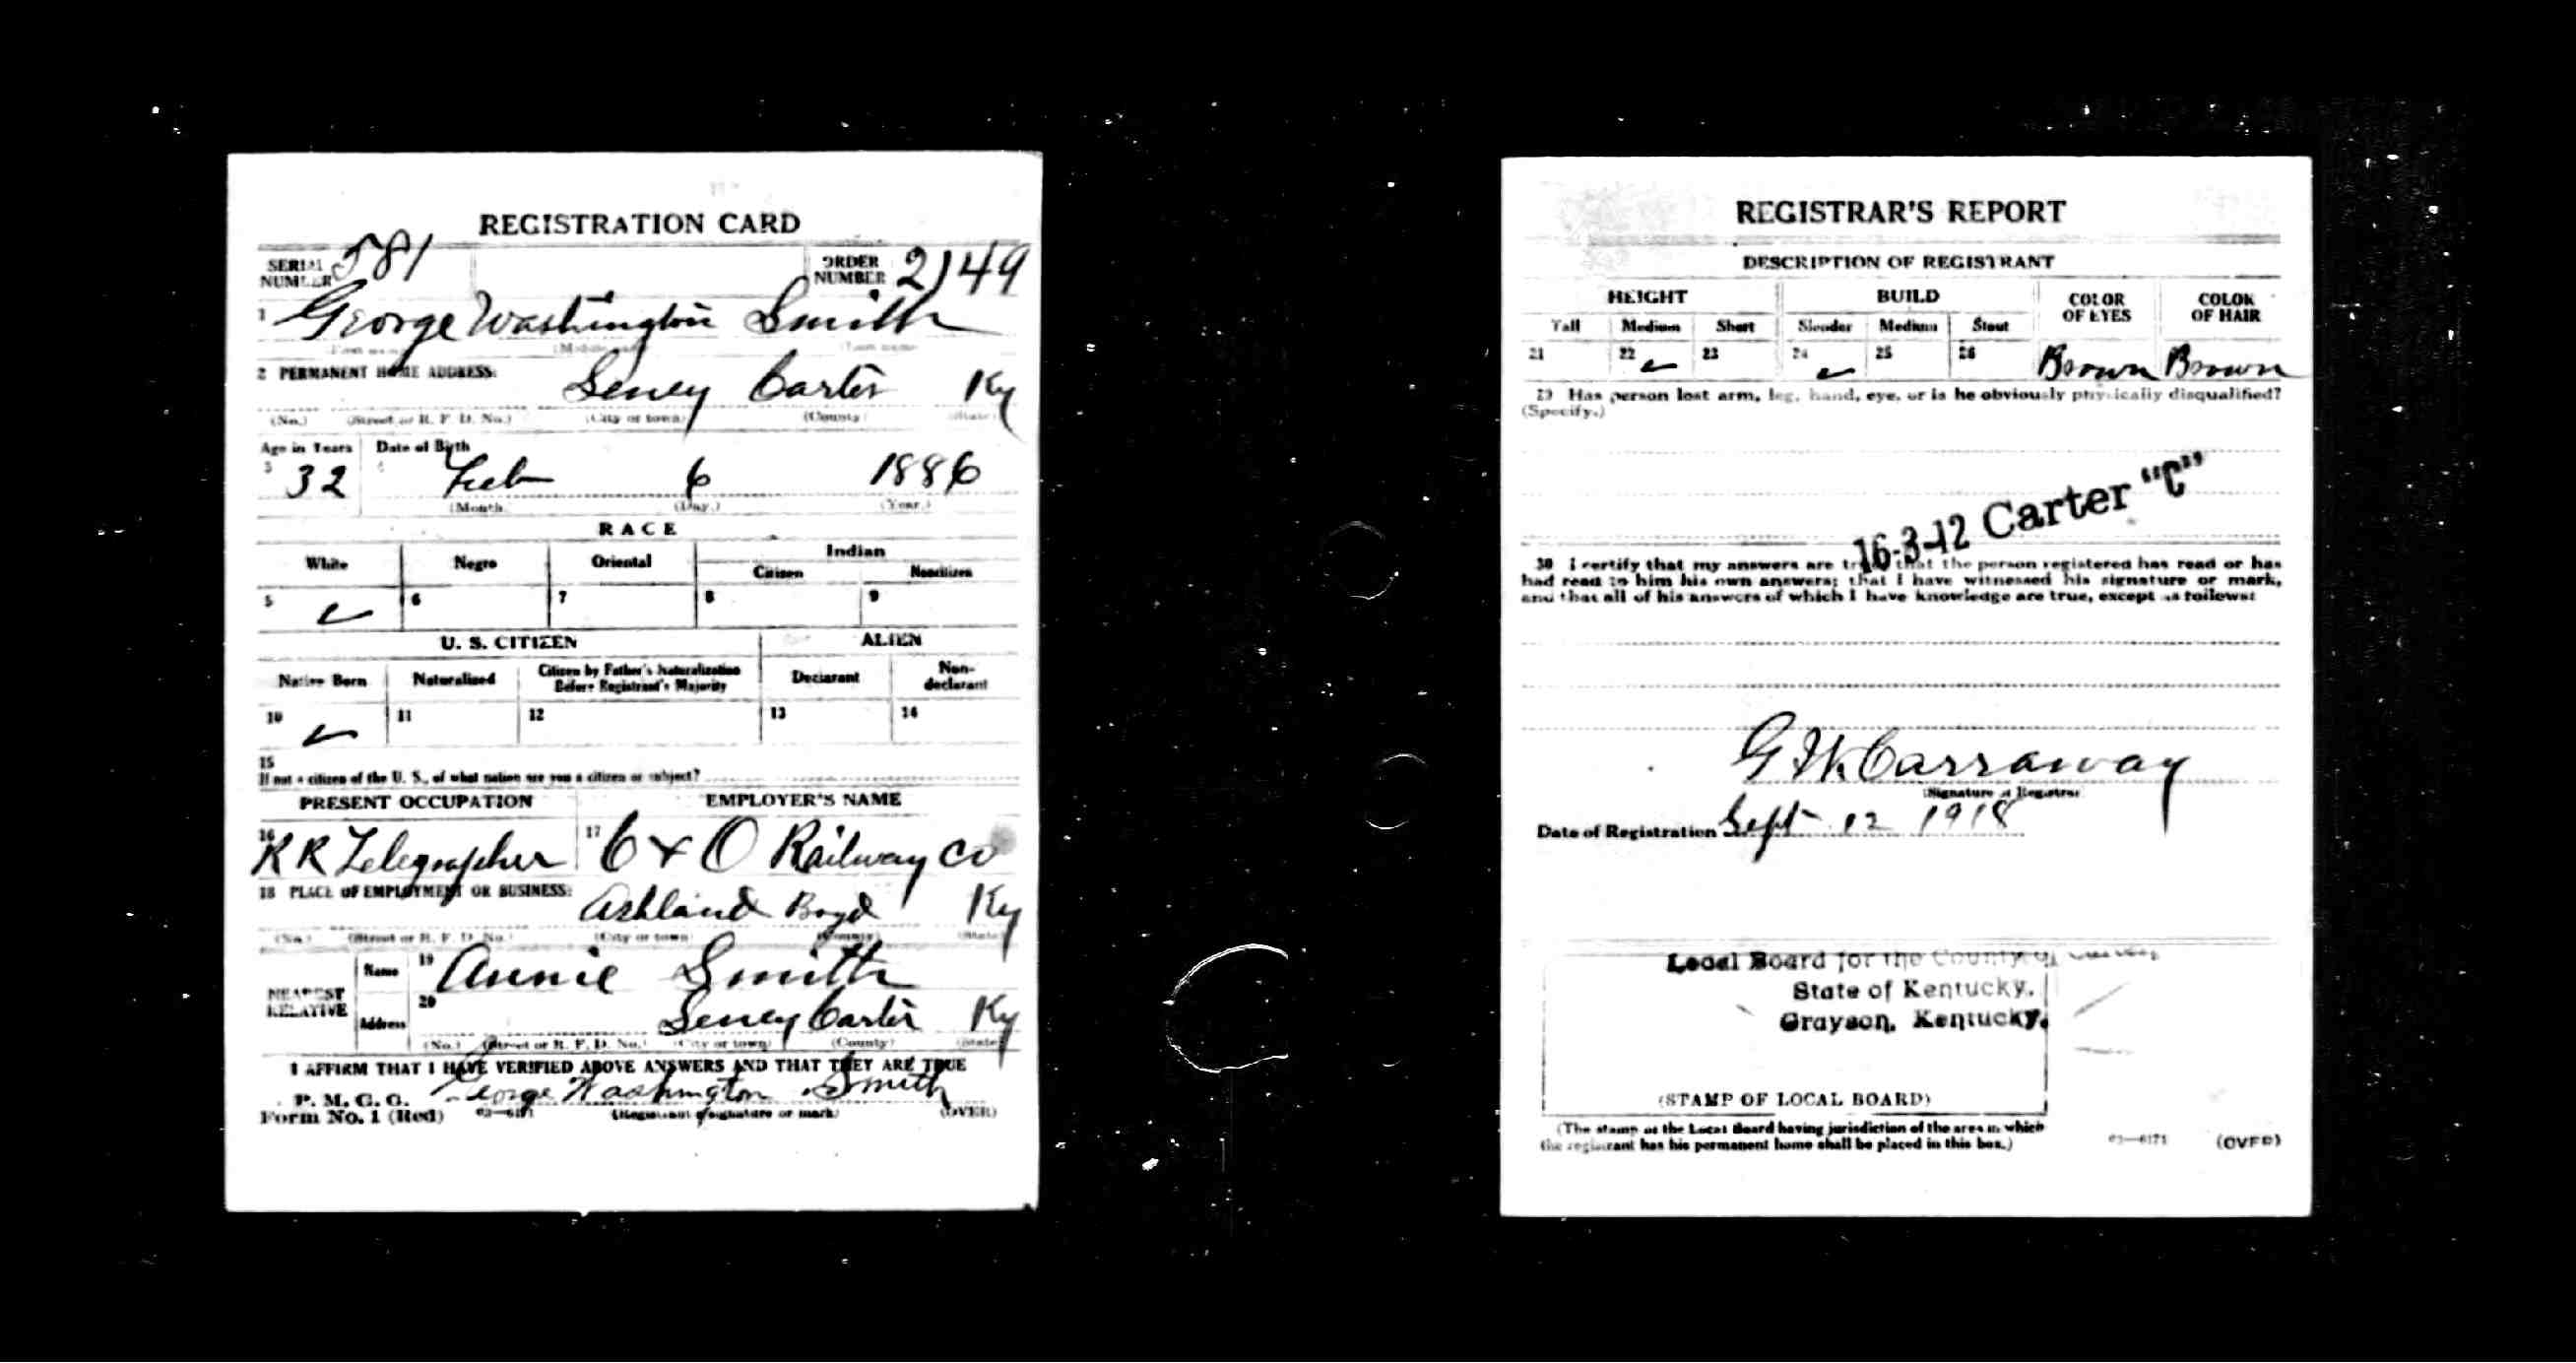 REGISTRATION CARD
SERIAL NUMBER 581 ORDER NUMBER 2149
1 George Washington Smith
(First name) (Middle name) (Last name)
2 PERMANENT HOME ADDRESS:
Seney Carter Ky
(No.) (Street or R. F. D. No.) (City or town) (County) (State)
Age in Years Date of Birth
3 32 4 Feb 6 1886
(Month.) (Day.) (Year.)
RACE
White Negro Oriental Indian
Citizen Noncitizen
5 6 7 8 9
U. S. CITIZEN ALIEN
Native Born Naturalized Citizen by Father's Naturalization Before Registrant's Majority Declarant Non-declarant
10 11 12 13 14
15
If not a citizen of the U. S., of what nation are you a citizen or subject?
PRESENT OCCUPATION EMPLOYER'S NAME
16 R R Telegrapher 17 C & O Railway Co
18 PLACE OF EMPLOYMENT OR BUSINESS:
Ashland Boyd Ky
(No.) (Street or R. F. D. No.) (City or town) (County) (State)
NEAREST RELATIVE Name 19 Annie Smith
Address 20 Seney Carter Ky
(No.) (Street or R. F. D. No.) (City or town) (County) (State)
I AFFIRM THAT I HAVE VERIFIED ABOVE ANSWERS AND THAT THEY ARE TRUE
P. M. G. O.
Form No. 1 (Red) 03—6171 George Washington Smith
(Registrant's signature or mark) (OVER)
REGISTRAR'S REPORT
DESCRIPTION OF REGISTRANT
HEIGHT BUILD COLOR OF EYES COLOR OF HAIR
Tall Medium Short Slender Medium Stout
21 22 23 24 25 26 Brown Brown
29 Has person lost arm, leg, hand, eye, or is he obviously physically disqualified?
(Specify.)
16-3-12 Carter "C"
30 I certify that my answers are true; that the person registered has read or has
had read to him his own answers; that I have witnessed his signature or mark,
and that all of his answers of which I have knowledge are true, except as follows:
Carraway
(Signature of Registrar)
Date of Registration Sept 12 1918
Local Board for the County of
State of Kentucky.
Grayson, Kentucky.
(STAMP OF LOCAL BOARD)
(The stamp of the Local Board having jurisdiction of the area in which
the registrant has his permanent home shall be placed in this box.)
03—6171 (OVER)